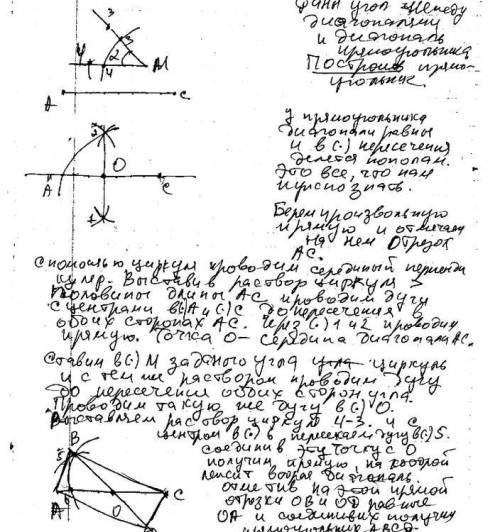 Дан угол между
диагоналями
и диагональ
прямоугольника
Построить прямо-
угольник.
3
3
2
4
М
А
С
У прямоугольника
диагонали равны
и в (·) пересечения
делятся пополам.
Это все, что нам
нужно знать.
2
О
А
С
1
Берем произвольную
прямую и отмечаем
на нем отрезок
АС.
С помощью циркуля проводим серединный перпенди
куляр. Выставив раствор циркуля >
половины длины АС проводим дугу
с центрами в (·) А и (·) С до пересечения в
обоих сторонах АС. Через (·) 1 и 2 проводим
прямую. Точка О - середина диагонали АС.
Ставим в (·) М заданного угла циркуль
и с тем же раствором проводим дугу
до пересечения обоих сторон угла.
Проводим такую же дугу в (·) О.
Выставляем раствор циркуля 4-3. и с
центром в (·) 6 пересекаем дугу в (·) 5.
соединив эту точку с О
получим прямую, на которой
лежит вторая диагональ.
отметив на этой прямой
отрезки ОВ и OD равные
ОА и соединив их получим
прямоугольник ABCD
В
5
А
6
О
С